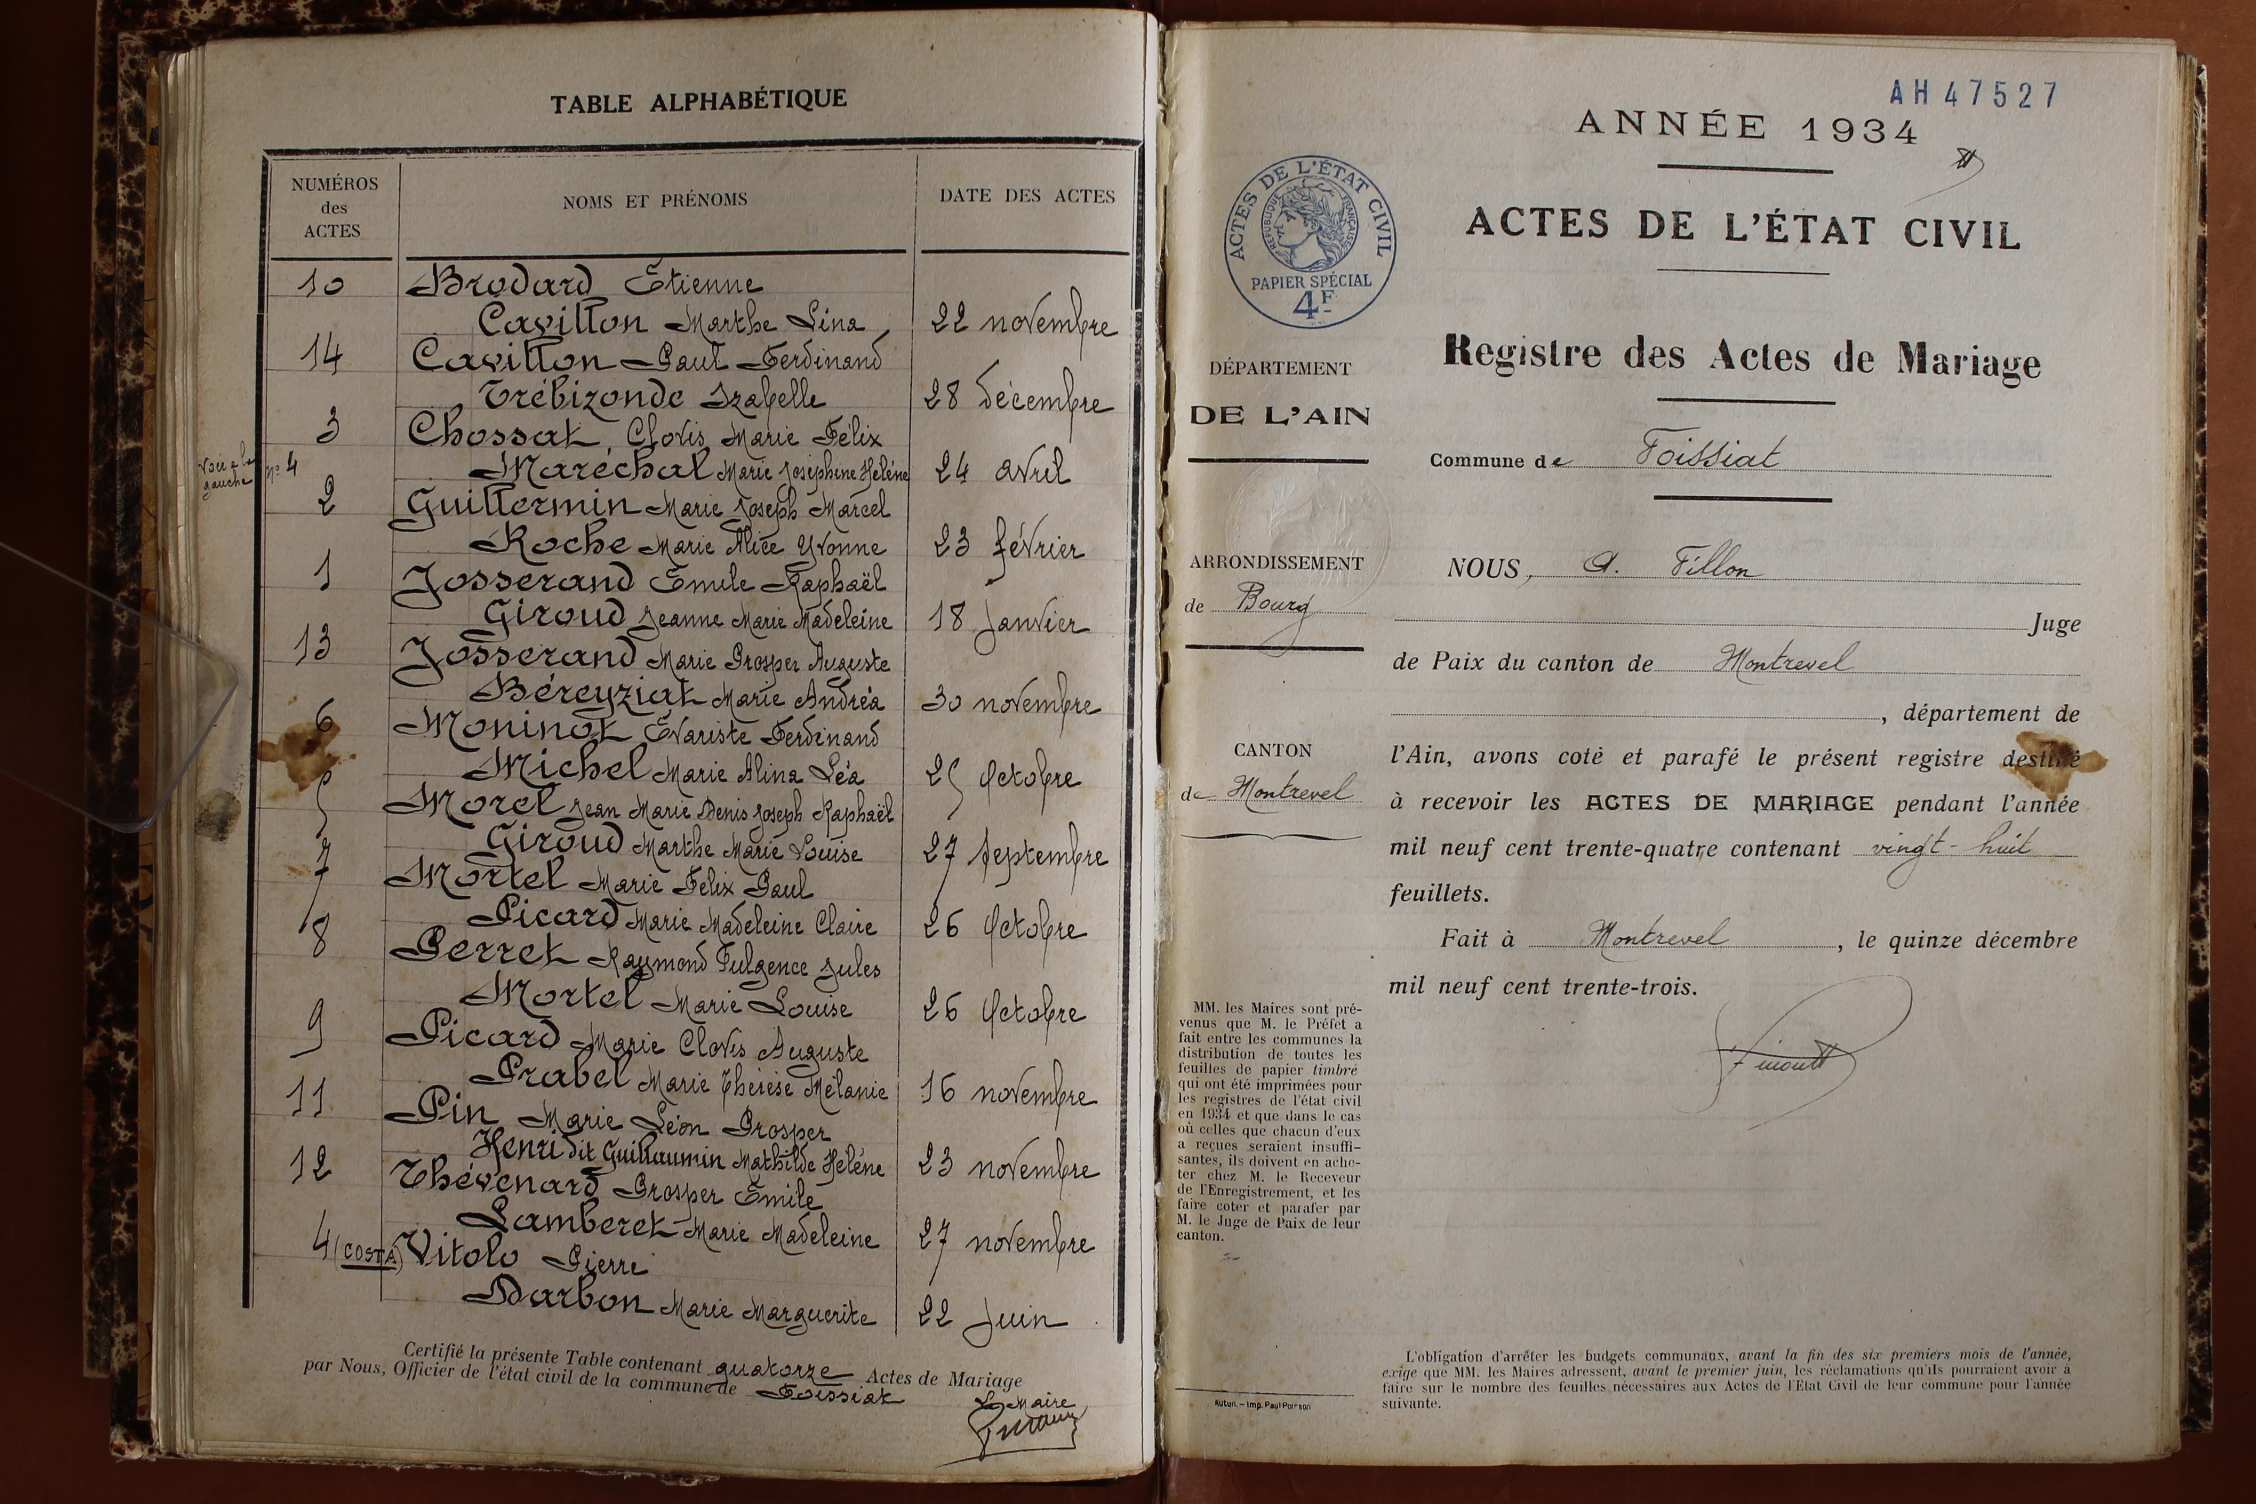 TABLE ALPHABÉTIQUE
NUMÉROS
des
ACTES
NOMS ET PRÉNOMS
DATE DES ACTES
10 Brodard Etienne
Cavillon Marthe Léna 22 novembre
14 Cavillon Paul Ferdinand
Trébizonde Izabelle 28 décembre
3 Chossat Clovis Marie Félix
Voir à la gauche No 4
Maréchal Marie Joséphine Heléne 24 avril
2 Guillermin Marie Joseph Marcel
Roche Marie Alice Yvonne 23 février
1 Josserand Emile Raphaël
Giroud Jeanne Marie Madeleine 18 Janvier
13 Josserand Marie Prosper Auguste
Béreyziat Marie Andréa 30 novembre
6 Moninot Evariste Ferdinand
Michel Marie Alina Léa 25 Octobre
5 Morel Jean Marie Denis Joseph Raphaël
Giroud Marthe Marie Louise 27 Septembre
7 Mortel Marie Felix Paul
Picard Marie Madeleine Claire 26 Octobre
8 Perret Raymond Fulgence Jules
Mortel Marie Louise 26 Octobre
9 Picard Marie Clovis Auguste
Prabel Marie Thérèse Mélanie 16 novembre
11 Pin Marie Léon Prosper
Henri dit Guillaumin Mathilde Heléne 23 novembre
12 Thévenard Prosper Emile
Lamberet Marie Madeleine 27 novembre
4 (COSTA) Vitolo Pierre
Darbon Marie Marguerite 22 Juin
Certifié la présente Table contenant quatorze Actes de Mariage
par Nous, Officier de l'état civil de la commune de Foissiat
Le Maire
AH 47527
ANNÉE 1934
ACTES DE L'ÉTAT CIVIL
RÉPUBLIQUE FRANÇAISE
PAPIER SPÉCIAL
4F
ACTES DE L'ÉTAT CIVIL
Registre des Actes de Mariage
DÉPARTEMENT
DE L'AIN
Commune de Foissiat
ARRONDISSEMENT
de Bourg
CANTON
de Montrevel
NOUS, A. Fillon
Juge
de Paix du canton de Montrevel
, département de
l'Ain, avons coté et parafé le présent registre destiné
à recevoir les ACTES DE MARIAGE pendant l'année
mil neuf cent trente-quatre contenant vingt-huit
feuillets.
Fait à Montrevel, le quinze décembre
mil neuf cent trente-trois.
MM. les Maires sont pré-
venus que M. le Préfet a
fait entre les communes la
distribution de toutes les
feuilles de papier timbré
qui ont été imprimées pour
les registres de l'état civil
en 1934 et que dans le cas
où celles que chacun d'eux
a reçues seraient insuffi-
santes, ils doivent en ache-
ter chez M. le Receveur
de l'Enregistrement, et les
faire coter et parafer par
M. le Juge de Paix de leur
canton.
Autun. – Imp. Paul Poirson
L'obligation d'arrêter les budgets communaux, avant la fin des six premiers mois de l'année,
exige que MM. les Maires adressent, avant le premier juin, les réclamations qu'ils pourraient avoir à
faire sur le nombre des feuilles nécessaires aux Actes de l'Etat Civil de leur commune pour l'année
suivante.